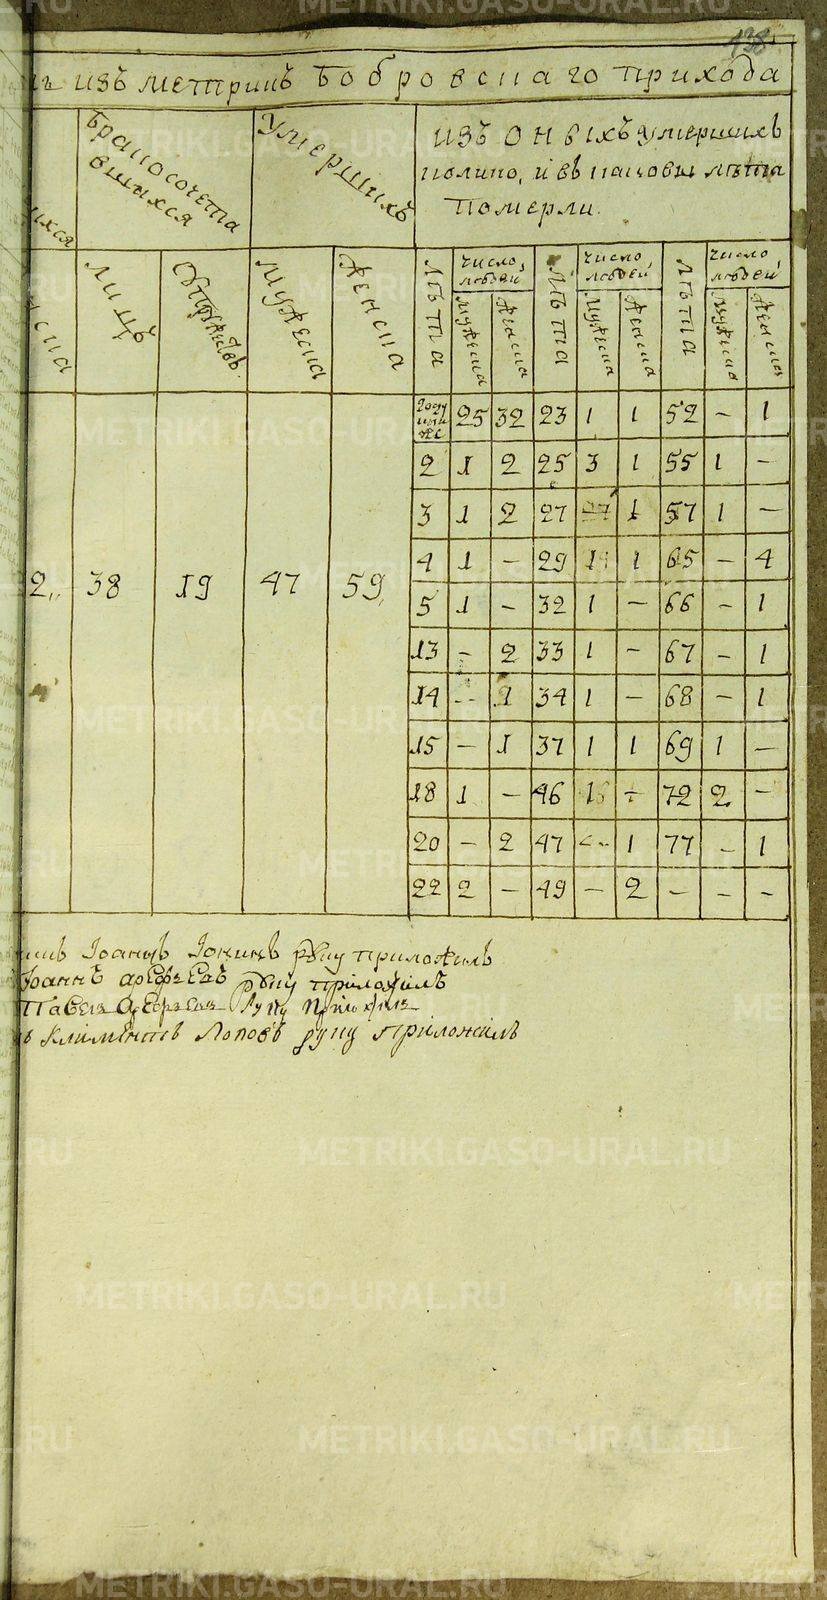 138
изъ метрикъ Бобровскаго прихода
бракосочета
вшыхся
Умершихъ
изъ оныхъ умершихъ
колико, и въ каковы лѣта
померли.
ихся
лицъ
супружествъ
мужеска
женска
лѣта
число людей
мужеска
женска
лѣта
число людей
мужеска
женска
лѣта
число людей
мужеска
женска
2 38 19 47 59
году 25 32 23 1 1 52 – 1
2 1 2 25 3 1 55 1 –
3 1 2 27 1 57 1 –
4 1 – 29 1 1 65 – 4
5 1 – 32 1 – 66 – 1
13 – 2 33 1 – 67 – 1
14 – 1 34 1 – 68 – 1
15 – 1 37 1 1 69 1 –
18 1 – 46 1 – 72 2 –
20 – 2 47 – 1 77 – 1
22 2 – 49 – 2 – – –
Іоаннъ руку приложилъ
Іоаннъ Арефьевъ руку приложилъ
Павелъ Арефьевъ руку приложилъ
Климентъ Поповъ руку приложилъ
METRIKI.GASO-URAL.RU